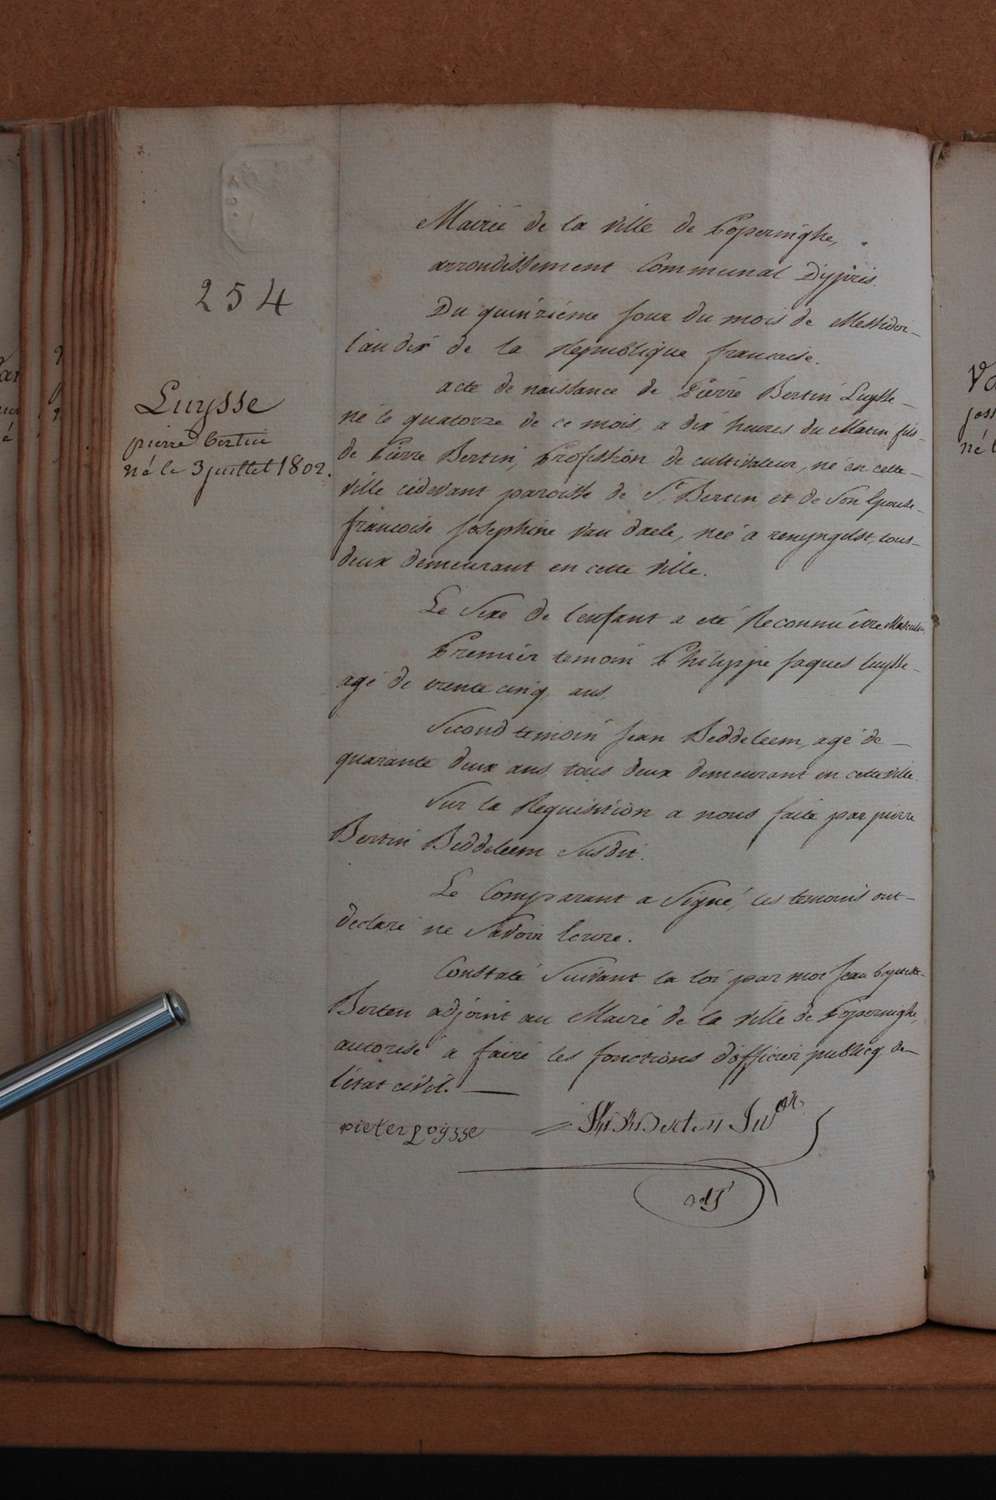 254
Luysse
pierre bertin
né le 3 juillet 1802.
Mairie de la ville de Poperinghe,
arrondissement Communal D'ypris.
Du quinzième Jour du mois de Messidor
l'an dix de la Republique francaise.
acte de naissance de Pierre Bertin Luysse
né le quatorze de ce mois, a dix heures du Matin fils
de Pierre Bertin, Profession de cultivateur, né en cette
ville cidevant paroisse de St Bertin et de Son Epouse
francoise Josephine Van daele, neé a renyngelst, tous
deux demeurant en cette ville.
Le Sexe de l'enfant a eté Reconnu étre Masculin
Premier temoin Philippe Jaques Luysse
agé de trente cinq ans,
Second temoin Jean Beddeleem, agé de
quarante deux ans, tous deux demeurant en cette ville.
Sur la Requisition a nous faite par pierre
Bertin Beddeleem Susdit.
Le Comparant a Signé, les temoins ont
declaré ne Savoir Ecrire.
Constaté Suivant la loi par moi Jean
Berten adjoint au Maire de la ville de Poperinghe,
autorisé a faire les fonctions d'officier publicq de
l'état civil.
pieter loysse
Berten
adj
Va
né l